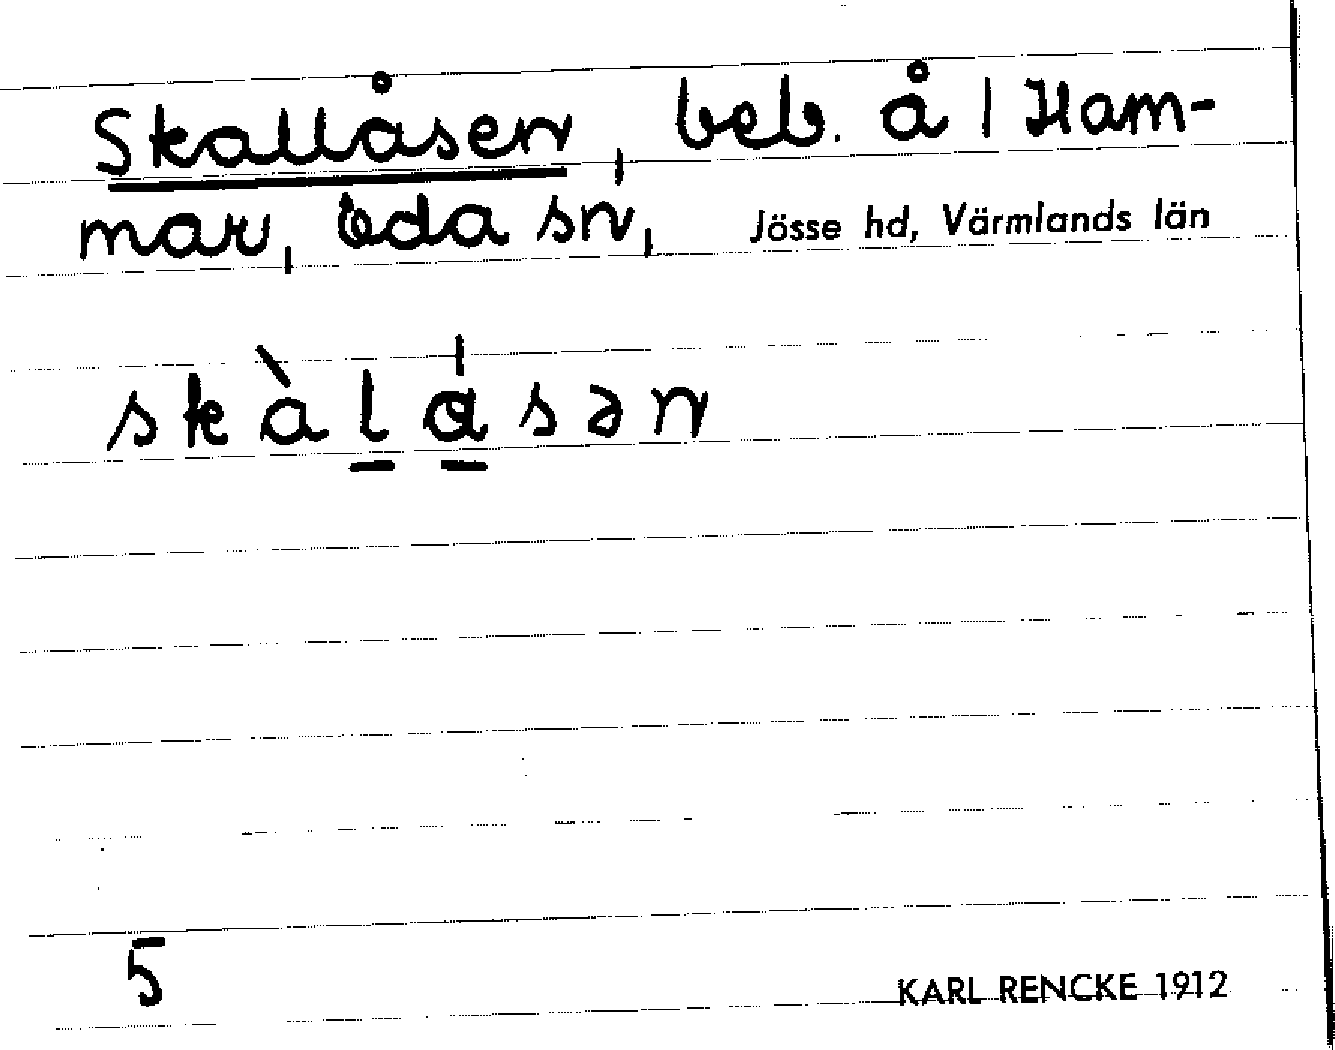 Skallåsen, beb. å 1 Ham-
mar, Eda sn, Jösse hd, Värmlands län
skàl̠á̠sən
5
KARL RENCKE 1912